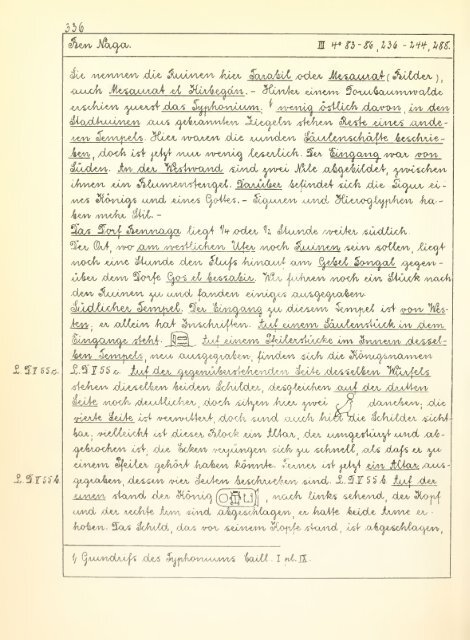 336
Ben Naga. III 4° 83-86, 236-244, 288.
Sie nennen die Ruinen hier Tarabil oder Mesaurat (Bilder),
auch Mesaurat el Hirbegân. - Hinter einem Dornbaumwalde
erschien zuerst das Typhonium. ¹⁾ wenig östlich davon, in den
Stadtruinen aus gebrannten Ziegeln stehen Reste eines ande-
ren Tempels. Hier waren die runden Säulenschäfte beschrie-
ben, doch ist jetzt nur wenig leserlich. Der Eingang war von
Süden. An der Westwand sind zwei Nile abgebildet, zwischen
ihnen ein Blumenstengel. Darüber befindet sich die Figur ei-
nes Königs und eines Gottes. - Figuren und Hieroglyphen ha-
ben mehr Stil. -
Das Dorf Bennaga liegt ¼ oder ½ Stunde weiter südlich.
Der Ort, wo am westlichen Ufer noch Ruinen sein sollen, liegt
noch eine Stunde den Fluß hinauf am Gebel Songal gegen-
über dem Dorfe Gos el bessabir. Wir fuhren noch ein Stück nach
den Ruinen zu und fanden einiges ausgegraben.
Südlicher Tempel. Der Eingang zu diesem Tempel ist von Wes-
ten, er allein hat Inschriften. Auf einem Säulenstück in dem
Eingange steht. Auf einem Pfeilerstücke im Innern dessel-
ben Tempels, neu ausgegraben, finden sich die Königsnamen
L.D V 55a. L.D V 55a. Auf der gegenüberstehenden Seite desselben Würfels
stehen dieselben beiden Schilder, desgleichen auf der dritten
Seite noch deutlicher, doch sitzen hier zwei daneben, die
vierte Seite ist verwittert, doch sind auch hier die Schilder sicht-
bar, vielleicht ist dieser Block ein Altar, der umgestürzt und ab-
gebrochen ist, die Ecken verjüngen sich zu schnell, als daß er zu
einem Pfeiler gehört haben könnte. Ferner ist jetzt ein Altar aus-
gegraben, dessen vier Seiten beschrieben sind. L.D V 55b. Auf der
L.D V 55b. einen stand der König, nach links sehend, der Kopf
und der rechte Arm sind abgeschlagen, er hatte beide Arme er-
hoben. Das Schild, das vor seinem Kopfe stand, ist abgeschlagen,
1) Grundriß des Typhoniums Caill. I pl. IX.